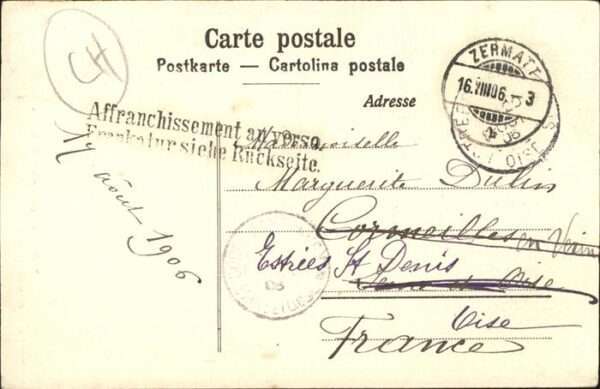 CH
Carte postale
Postkarte — Cartolina postale
Adresse
ZERMATT
16.VIII.06. 3
Affranchissement au verso.
Frankatur siehe Rückseite.
17 août 1906
Mademoiselle
Marguerite Dubin
Cormeilles en Vexin
Estrées St Denis
Seine et Oise
Oise
France